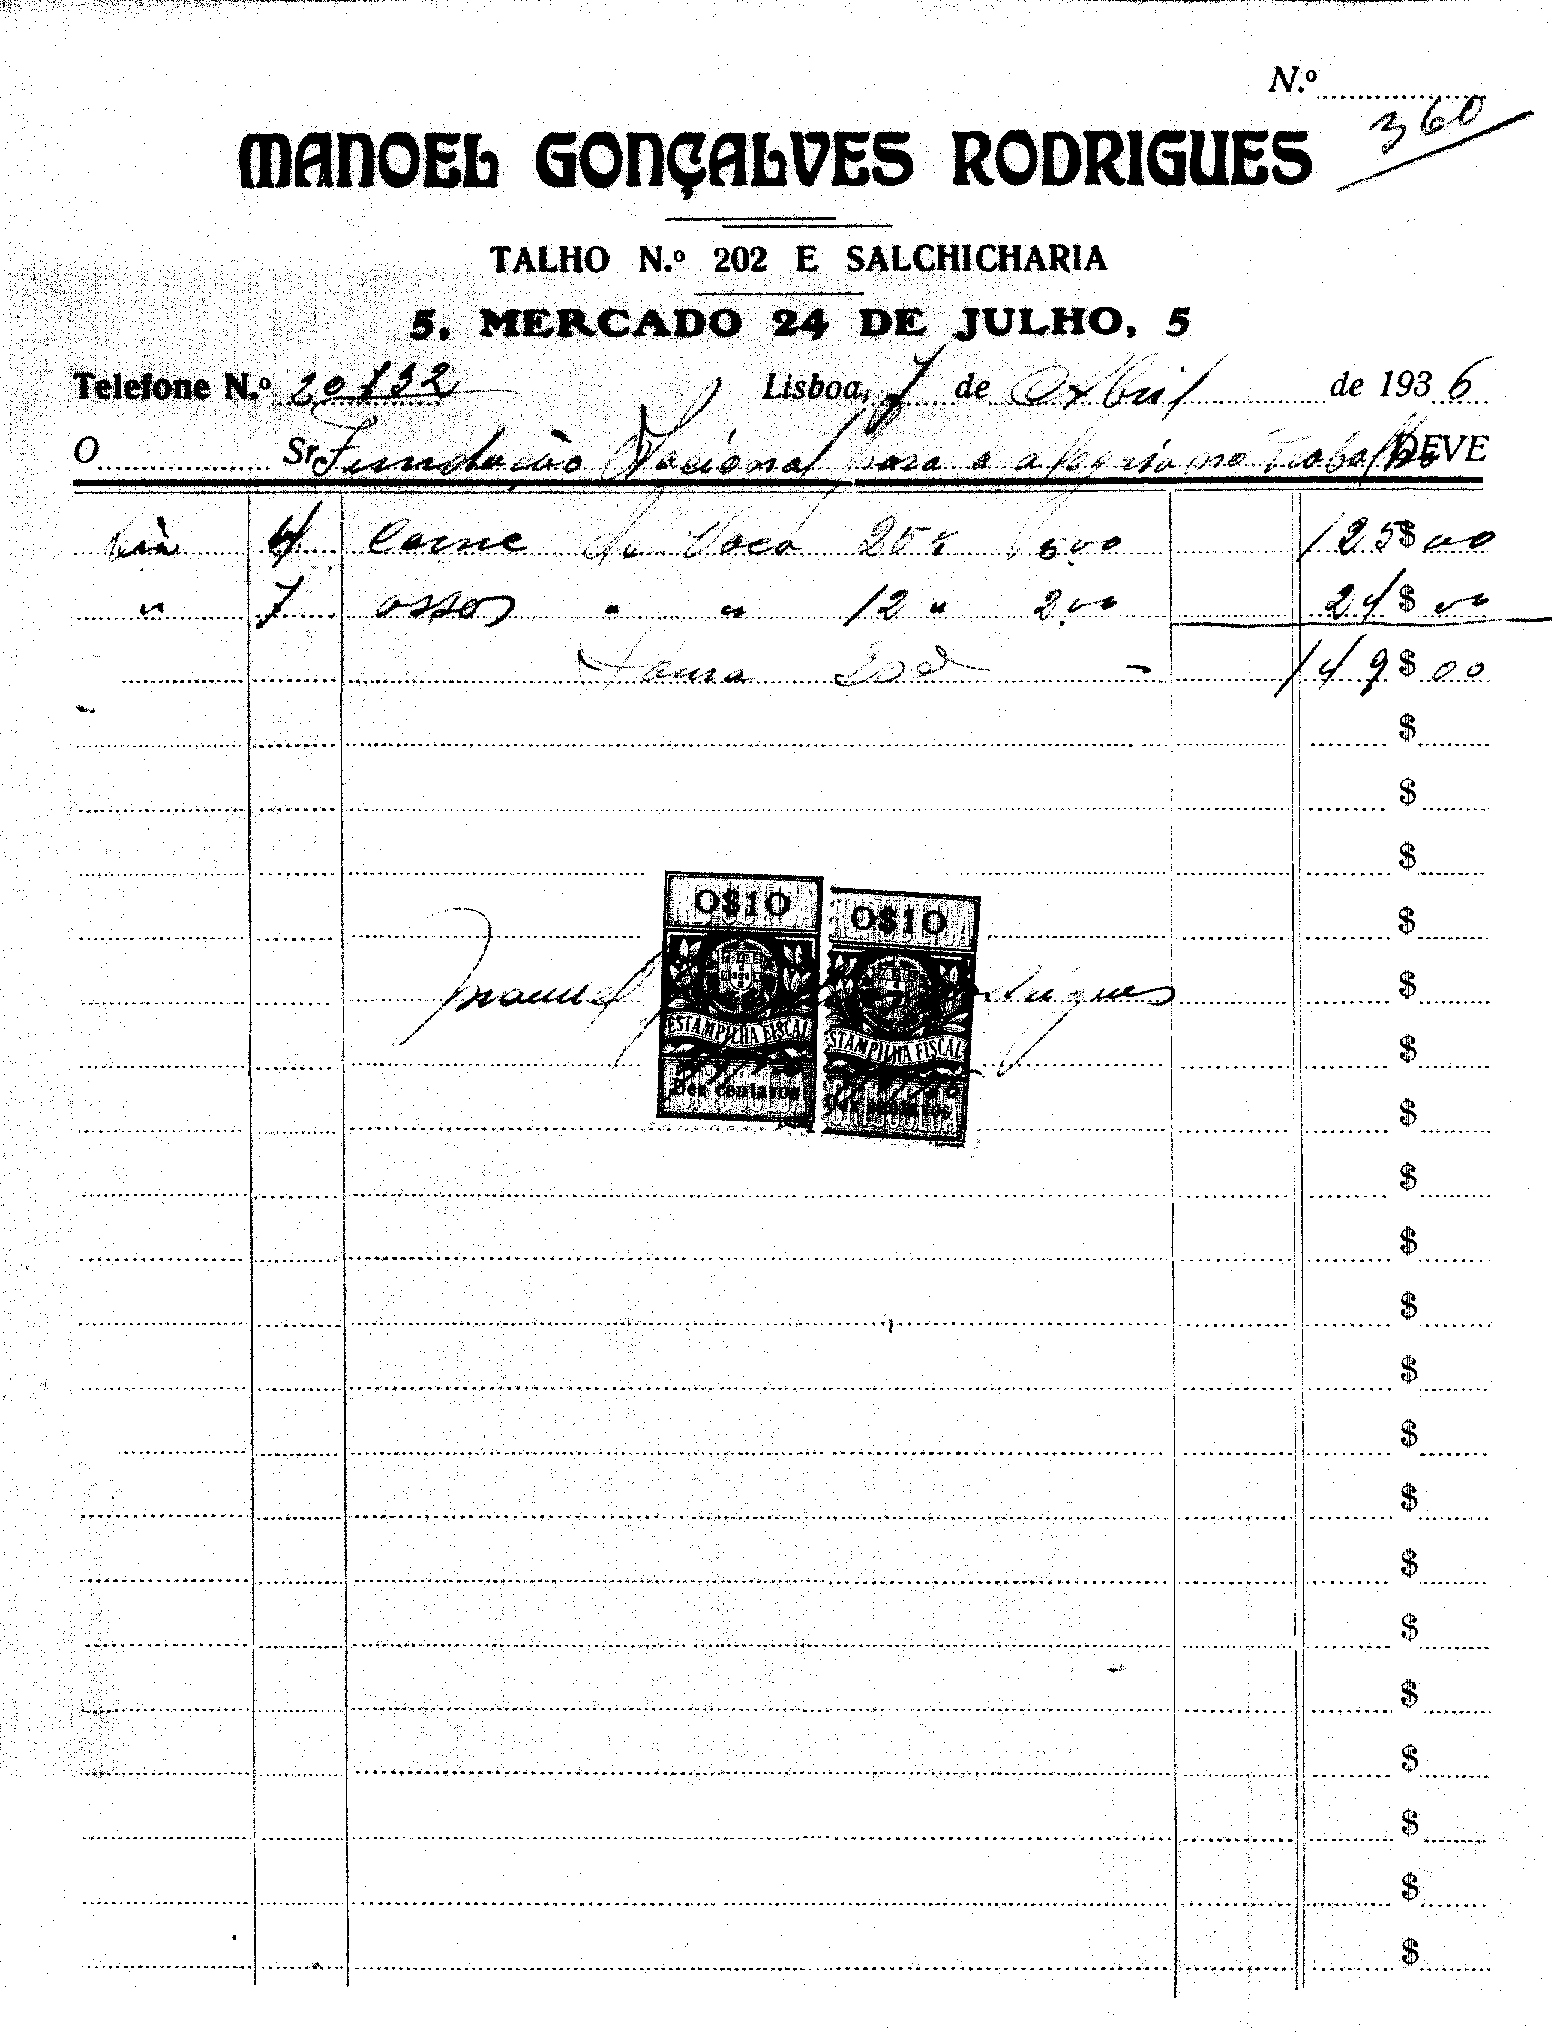 N.º
360
MANOEL GONÇALVES RODRIGUES
TALHO N.º 202 E SALCHICHARIA
5, MERCADO 24 DE JULHO, 5
Telefone N.º 20132 Lisboa, 7 de Abril de 1936
O Sr. Fundação Nacional para a alegria no Trabalho DEVE
4 Carne de Vaca 25 k 5,00 125$00
" 7 ossos " " 12 " 2,00 24$00
Soma Esc 149$00
$
$
$
$
O$1O O$1O
$
Manuel Rodrigues
ESTAMPILHA FISCAL ESTAMPILHA FISCAL
$
Dez centavos Dez centavos
$
$
$
$
$
$
$
$
$
$
$
$
$
$